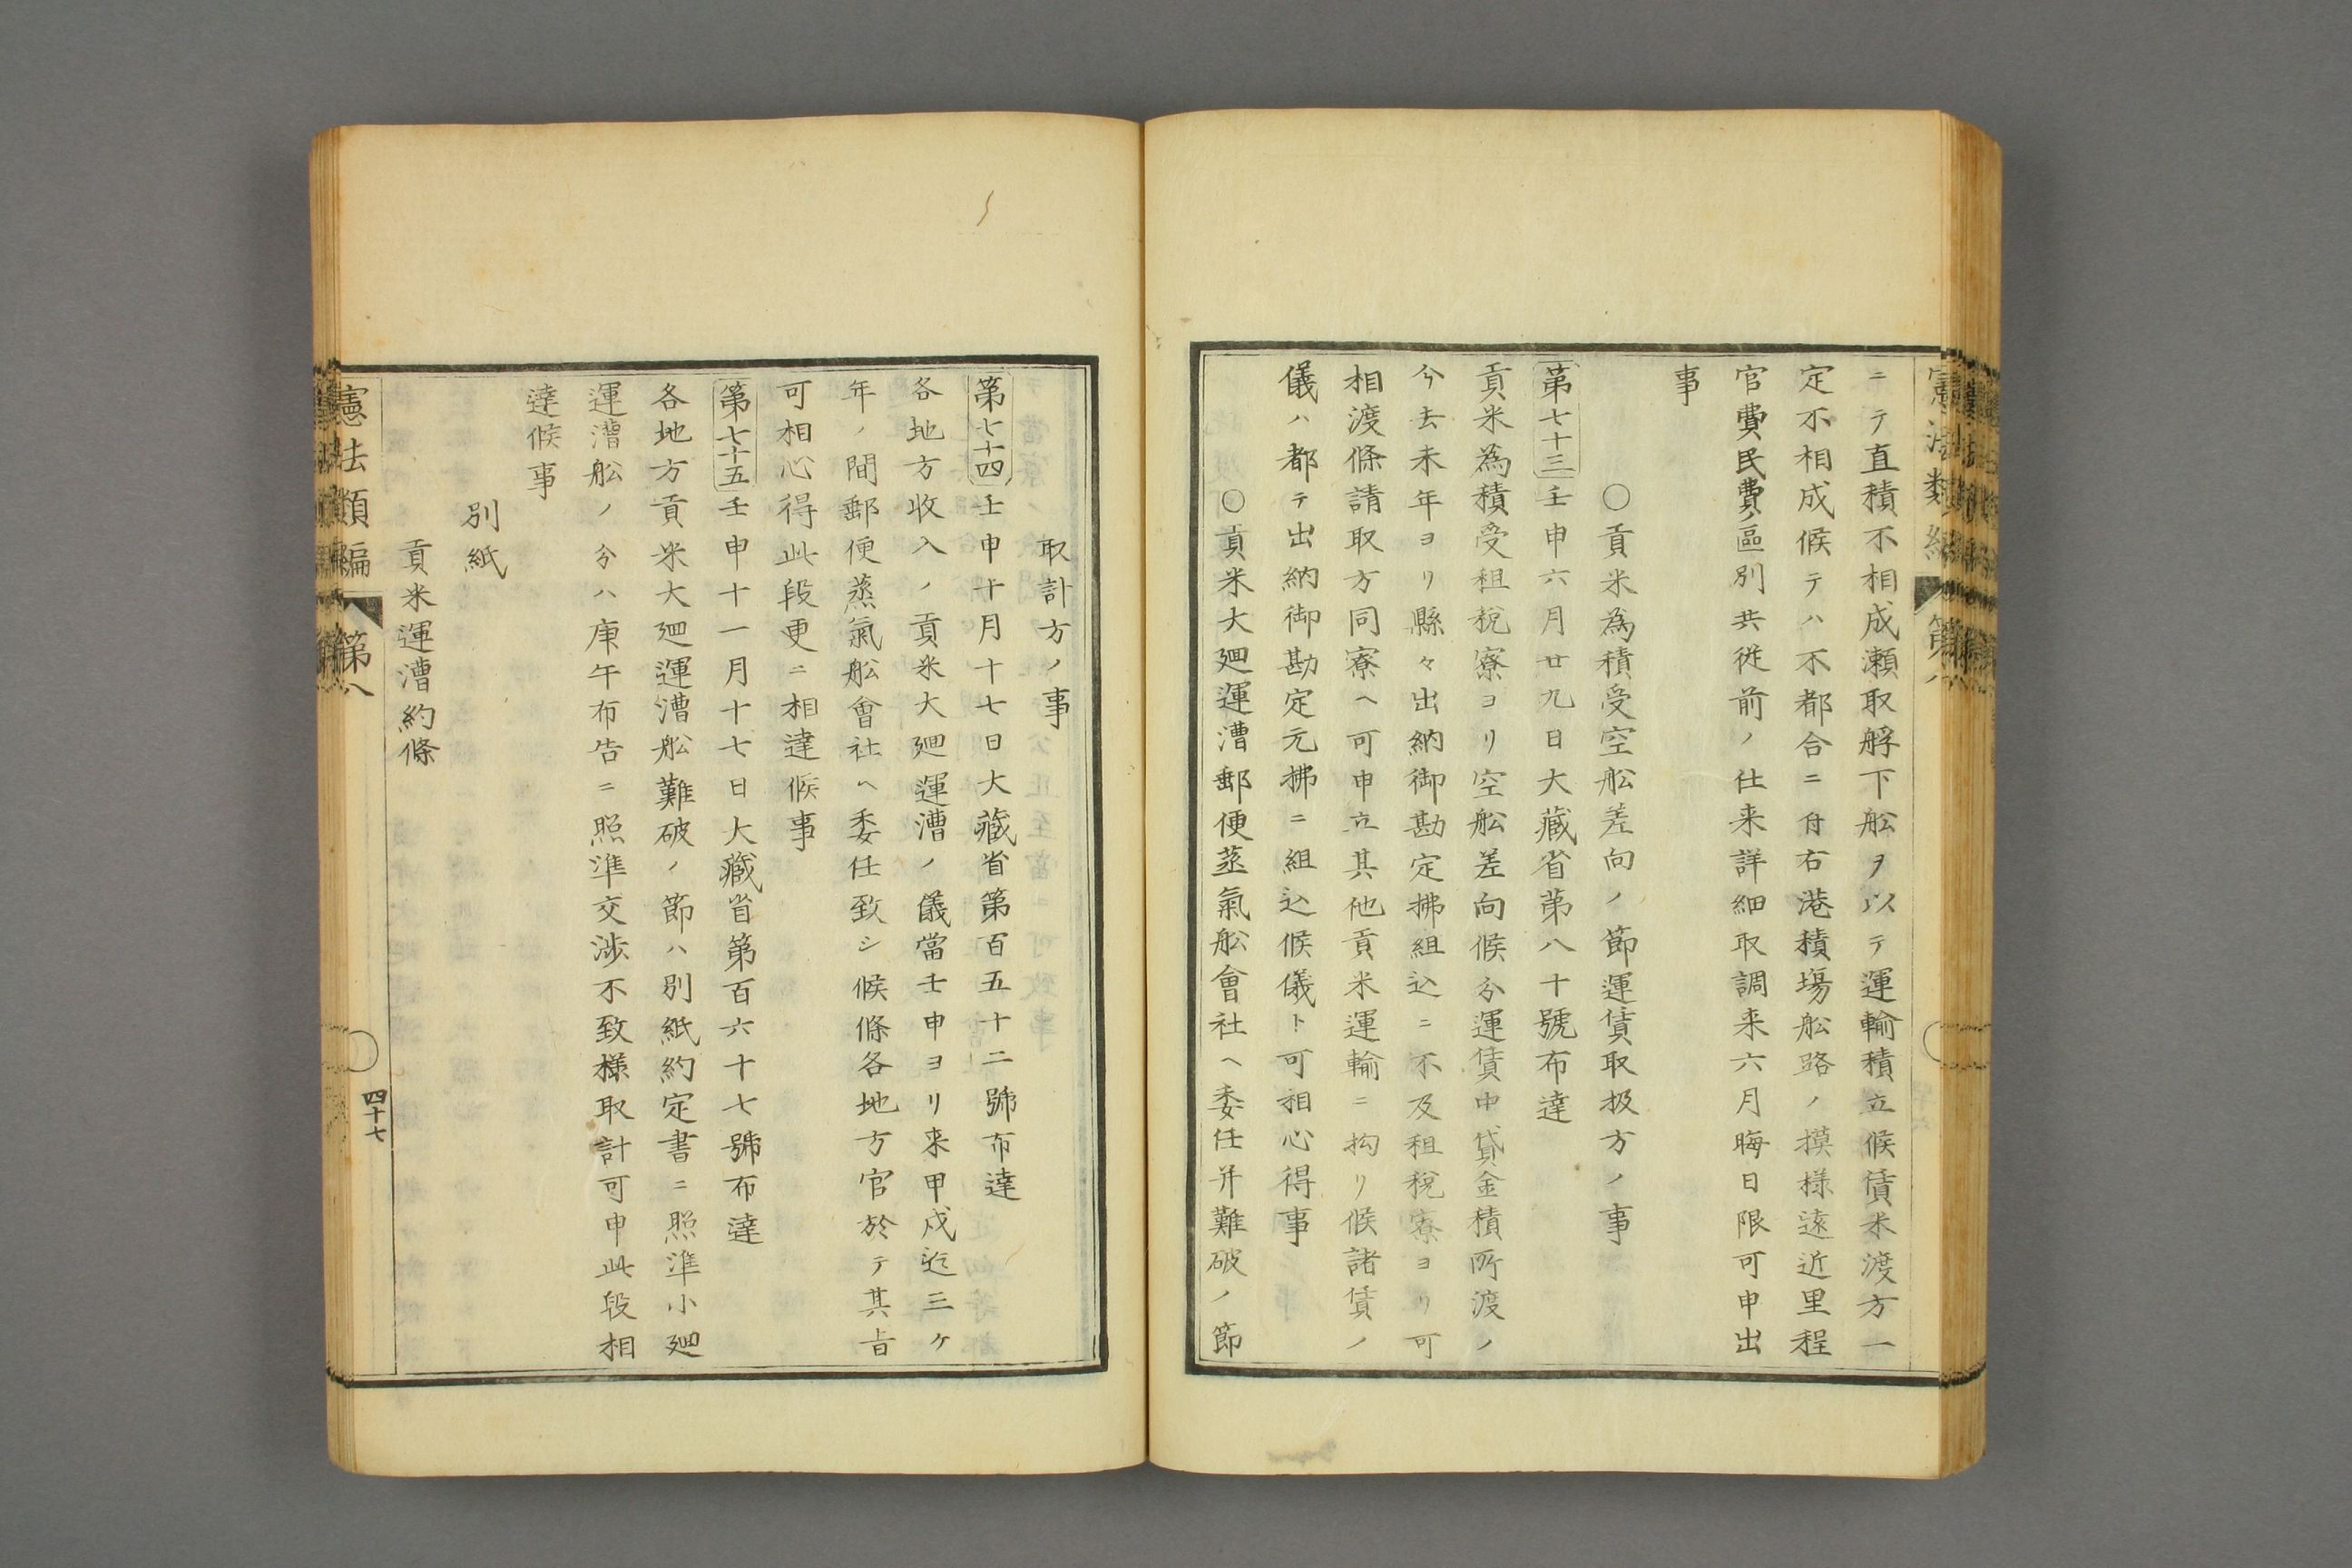 ニテ直積不相成瀬取艀下舩ヲ以テ運輸積立候賃米渡方一
定不相成候テハ不都合ニ付右港積塲舩路ノ摸様遠近里程
官費民費ノ區別共從前ノ仕来詳細取調来六月晦日限可申出
事
○貢米為積受空舩差向ノ節運賃取扱方ノ事
第七十三壬申六月廿九日大藏省第八十號布達
貢米為積受租税寮ヨリ空舩差向候分運賃中貸金積所渡ノ
分去未年ヨリ縣々出納御勘定拂組込ニ不及租税寮ヨリ可
相渡條請取方同寮ヘ可申立其他貢米運輸ニ拘リ候諸賃ノ
儀ハ都テ出納御勘定元拂ニ組込候儀ト可相心得事
○貢米大廻運漕郵便蒸氣舩會社ヘ委任并難破ノ節
取計方ノ事
第七十四壬申十月十七日大藏省第百五十二號布達
各地方收入ノ貢米大廻運漕ノ儀當壬申ヨリ来甲戌迄三ケ
年ノ間郵便蒸氣舩會社ヘ委任致シ候條各地方官於テ其旨
可相心得此段更ニ相達候事
第七十五壬申十一月十七日大藏省第百六十七號布達
各地方貢米大廻運漕舩難破ノ節ハ別紙約定書ニ照準小廻
運漕舩ノ分ハ庚午布告ニ照準交渉不致様取計可申此段相
達候事
別紙
貢米運漕約條
憲法類編 第八
四十七